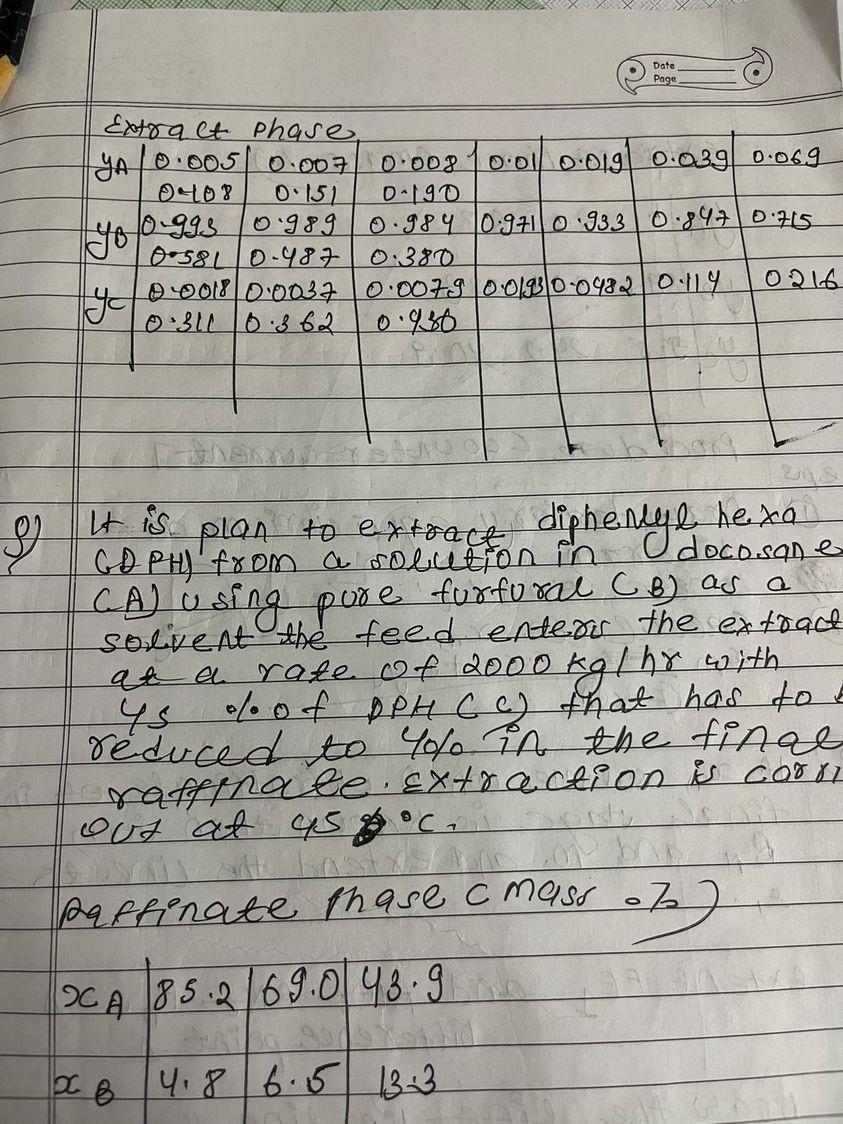 Date
Page
Extract phase
yA 0.005 0.007 0.008 0.01 0.019 0.039 0.069
0.108 0.151 0.190
yB 0.993 0.989 0.984 0.971 0.933 0.847 0.715
0.581 0.487 0.380
yC 0.0018 0.0037 0.0079 0.0193 0.0482 0.114 0.216
0.311 0.362 0.430
Q) It is plan to extract diphenyl hexa
(DPH) from a solution in docosane
(A) using pure furfural (B) as a
solvent the feed enters the extract
at a rate of 2000 kg/hr with
45 % of DPH (C) that has to b
reduced to 4% in the final
raffinate. Extraction is carri
out at 45 °C.
Raffinate Phase (Mass %)
xA 85.2 69.0 43.9
xB 4.8 6.5 13.3